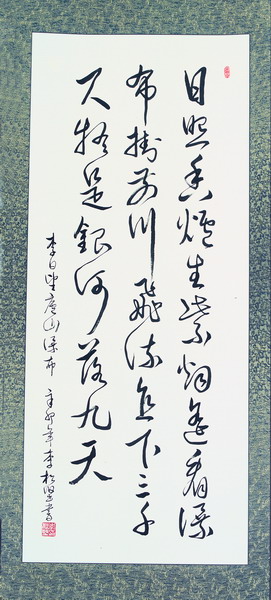 日照香爐生紫烟遥看瀑
布掛前川飛流直下三千
尺疑是銀河落九天
李白望廬山瀑布 辛卯年李松書